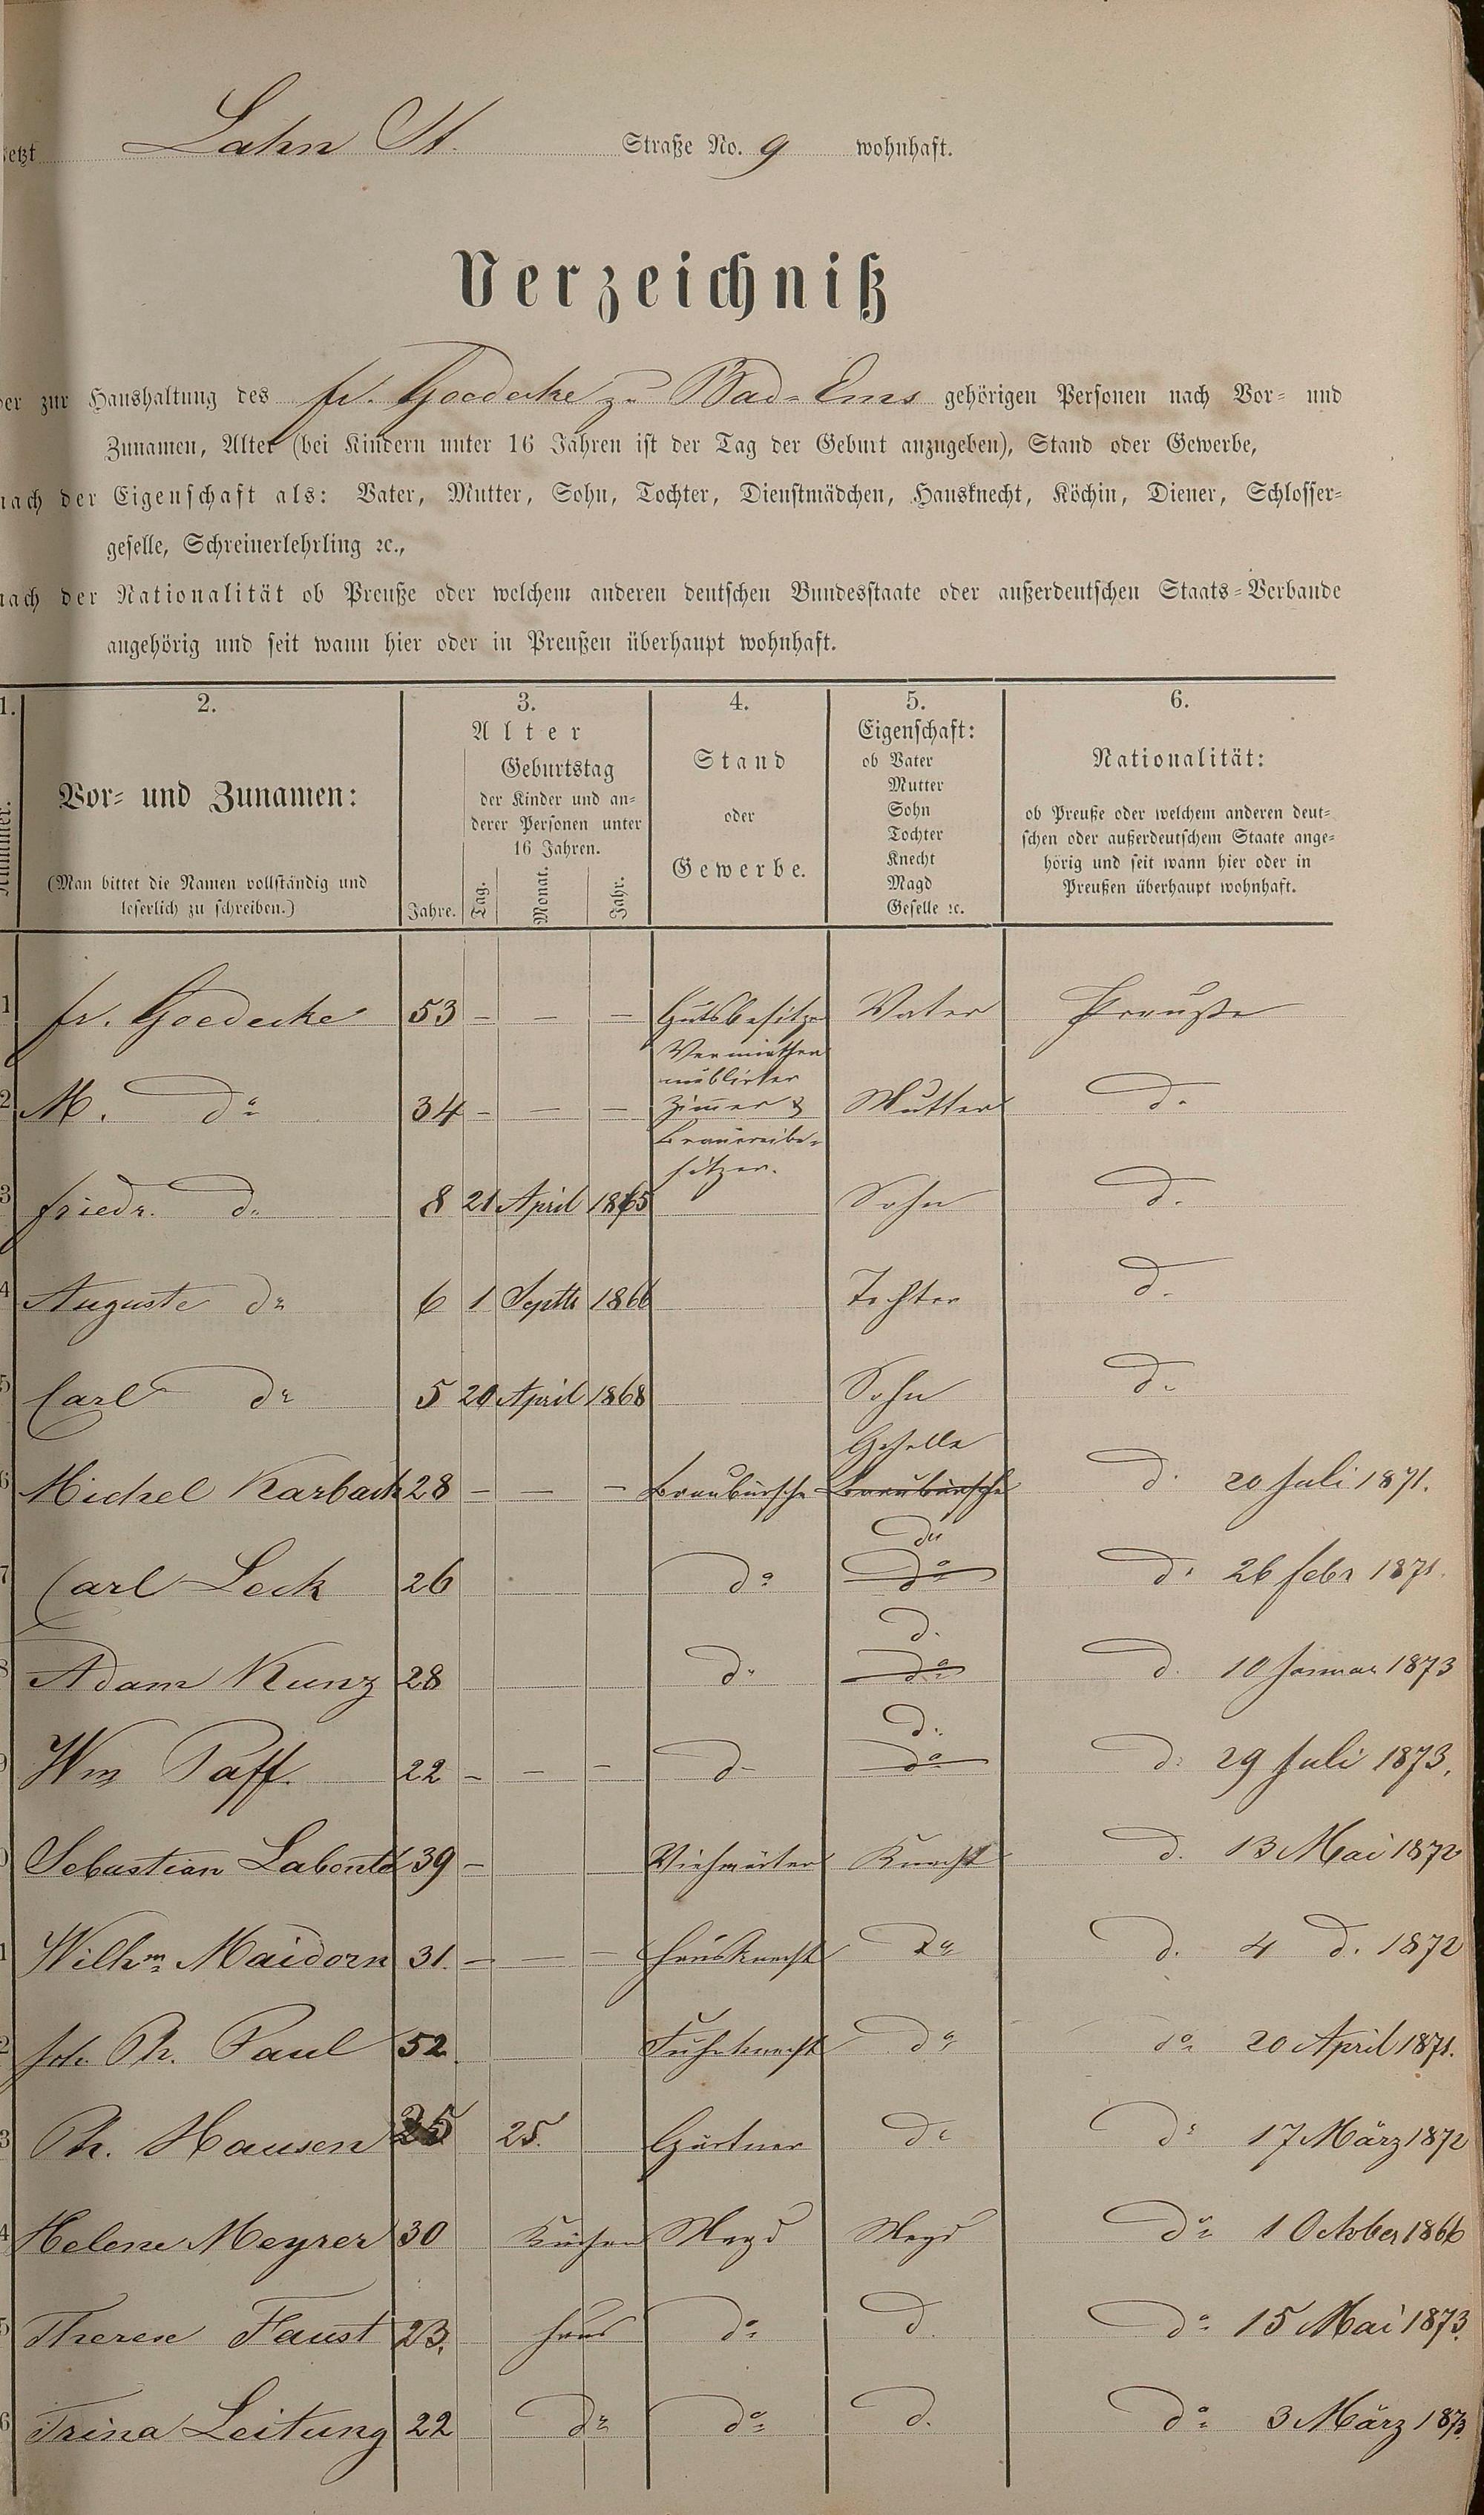 jetzt Lahn St. Straße No. 9 wohnhaft.
Verzeichniß
der zur Haushaltung des Fr. Goedecke zu Bad-Ems gehörigen Personen nach Vor- und
Zunamen, Alter (bei Kindern unter 16 Jahren ist der Tag der Geburt anzugeben), Stand oder Gewerbe,
nach der Eigenschaft als: Vater, Mutter, Sohn, Tochter, Dienstmädchen, Hausknecht, Köchin, Diener, Schlosser-
geselle, Schreinerlehrling ꝛc.,
nach der Nationalität ob Preuße oder welchem anderen deutschen Bundesstaate oder außerdeutschen Staats-Verbande
angehörig und seit wann hier oder in Preußen überhaupt wohnhaft.
1. 2. 3. 4. 5. 6.
Nummer.
Vor- und Zunamen:
(Man bittet die Namen vollständig und
leserlich zu schreiben.)
Alter
Geburtstag
der Kinder und an-
derer Personen unter
16 Jahren.
Jahre. Tag. Monat. Jahr.
Stand
oder
Gewerbe.
Eigenschaft:
ob Vater
Mutter
Sohn
Tochter
Knecht
Magd
Geselle ꝛc.
Nationalität:
ob Preuße oder welchem anderen deut-
schen oder außerdeutschem Staate ange-
hörig und seit wann hier oder in
Preußen überhaupt wohnhaft.
1 Fr. Goedecke 53 – – – Gutsbesitzer Vater Preuße
Vermiether
möblirter
2 M. do 34 – – – Zimmer & Mutter do
Brauereibe-
sitzer.
3 Friedr. do 8 21 April 1865 Sohn do
4 Auguste do 6 1 Septbr 1866 Tochter do
5 Carl do 5 20 April 1868 Sohn do
Geselle
6 Michel Karbach 28 – – – Braubursche Braubursche do 20 Juli 1871.
do
7 Carl Leck 26 do do do 26 Febr 1871.
do
8 Adam Kunz 28 do do do 10 Januar 1873
do
9 Wm Paff. 22 – – – do do do 29 Juli 1873.
Sebastian Labonté 39 – Viehwärter Knecht do 13 Mai 1872
1 Wilhm Maidorn 31. – – – Hausknecht do do 4 do 1872
2 Joh. Ph. Paul 52 Fuhrknecht do do 20 April 1871.
3 Ph. Hausen 25 25. Gärtner do do 17 März 1872
4 Helene Meyrer 30 Küchen Magd Magd do 1 October 1866
5 Therese Faust 23. Haus do do do 15 Mai 1873.
6 Trina Leitung 22 do do do do 3 März 1873.